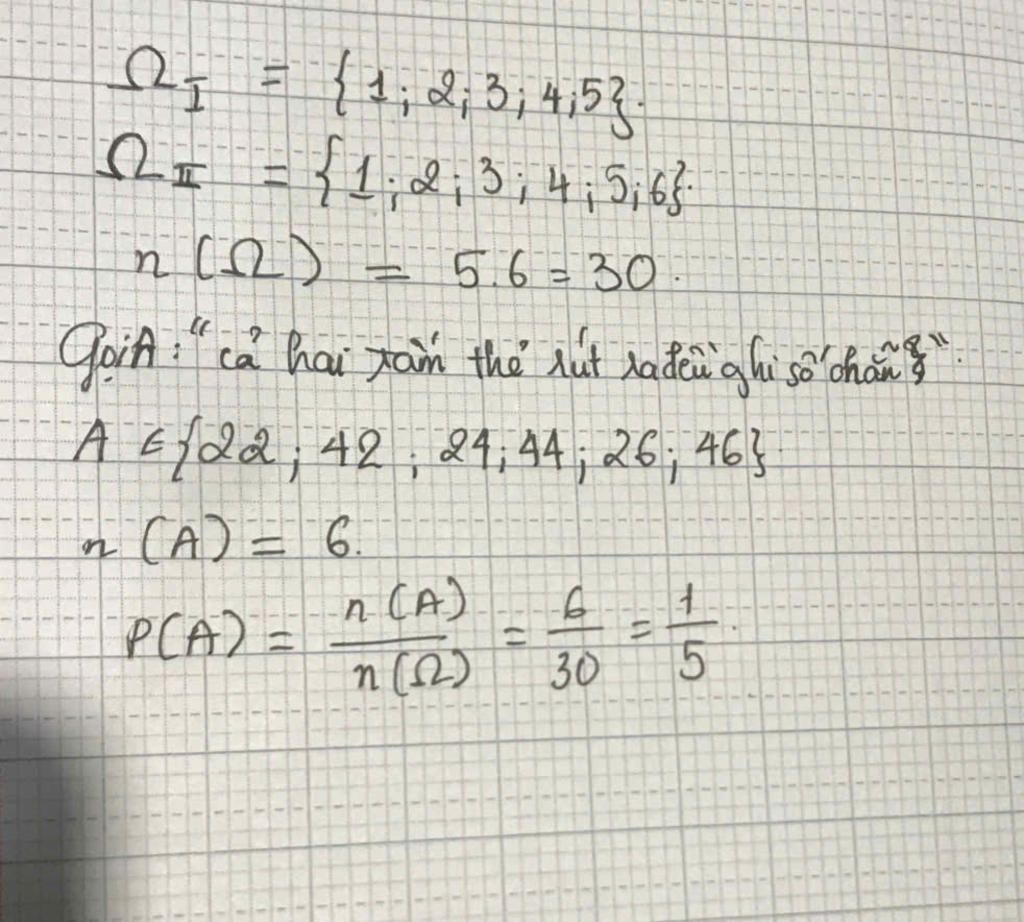 Ω_I = {1; 2; 3; 4; 5}.
Ω_II = {1; 2; 3; 4; 5; 6}.
n (Ω) = 5.6 = 30.
Gọi A: "cả hai tấm thẻ rút ra đều ghi số chẵn".
A ∈ {22; 42; 24; 44; 26; 46}.
n (A) = 6.
P(A) = n(A)/n(Ω) = 6/30 = 1/5.